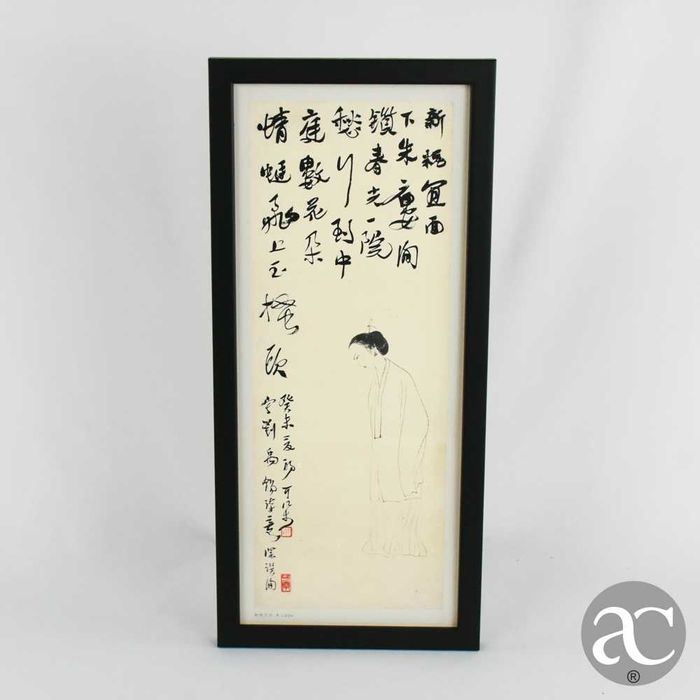 新粧宜面
下朱樓
鎖春光一院
愁行到中
庭數花朵
蜻蜓飛上玉搔頭
癸未夏初 可染
寫劉禹錫詩意 深誤
ac
®